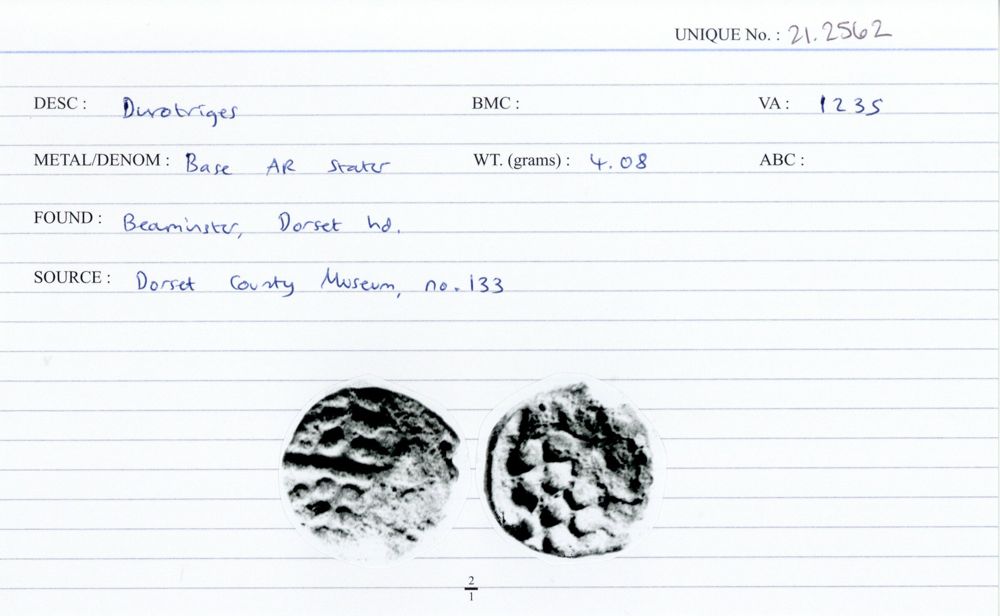 UNIQUE No. : 21.2562
DESC : Durotriges BMC : VA : 1235
METAL/DENOM : Base AR Stater WT. (grams) : 4.08 ABC :
FOUND : Beaminster, Dorset hd.
SOURCE : Dorset County Museum, no. 133
2
1